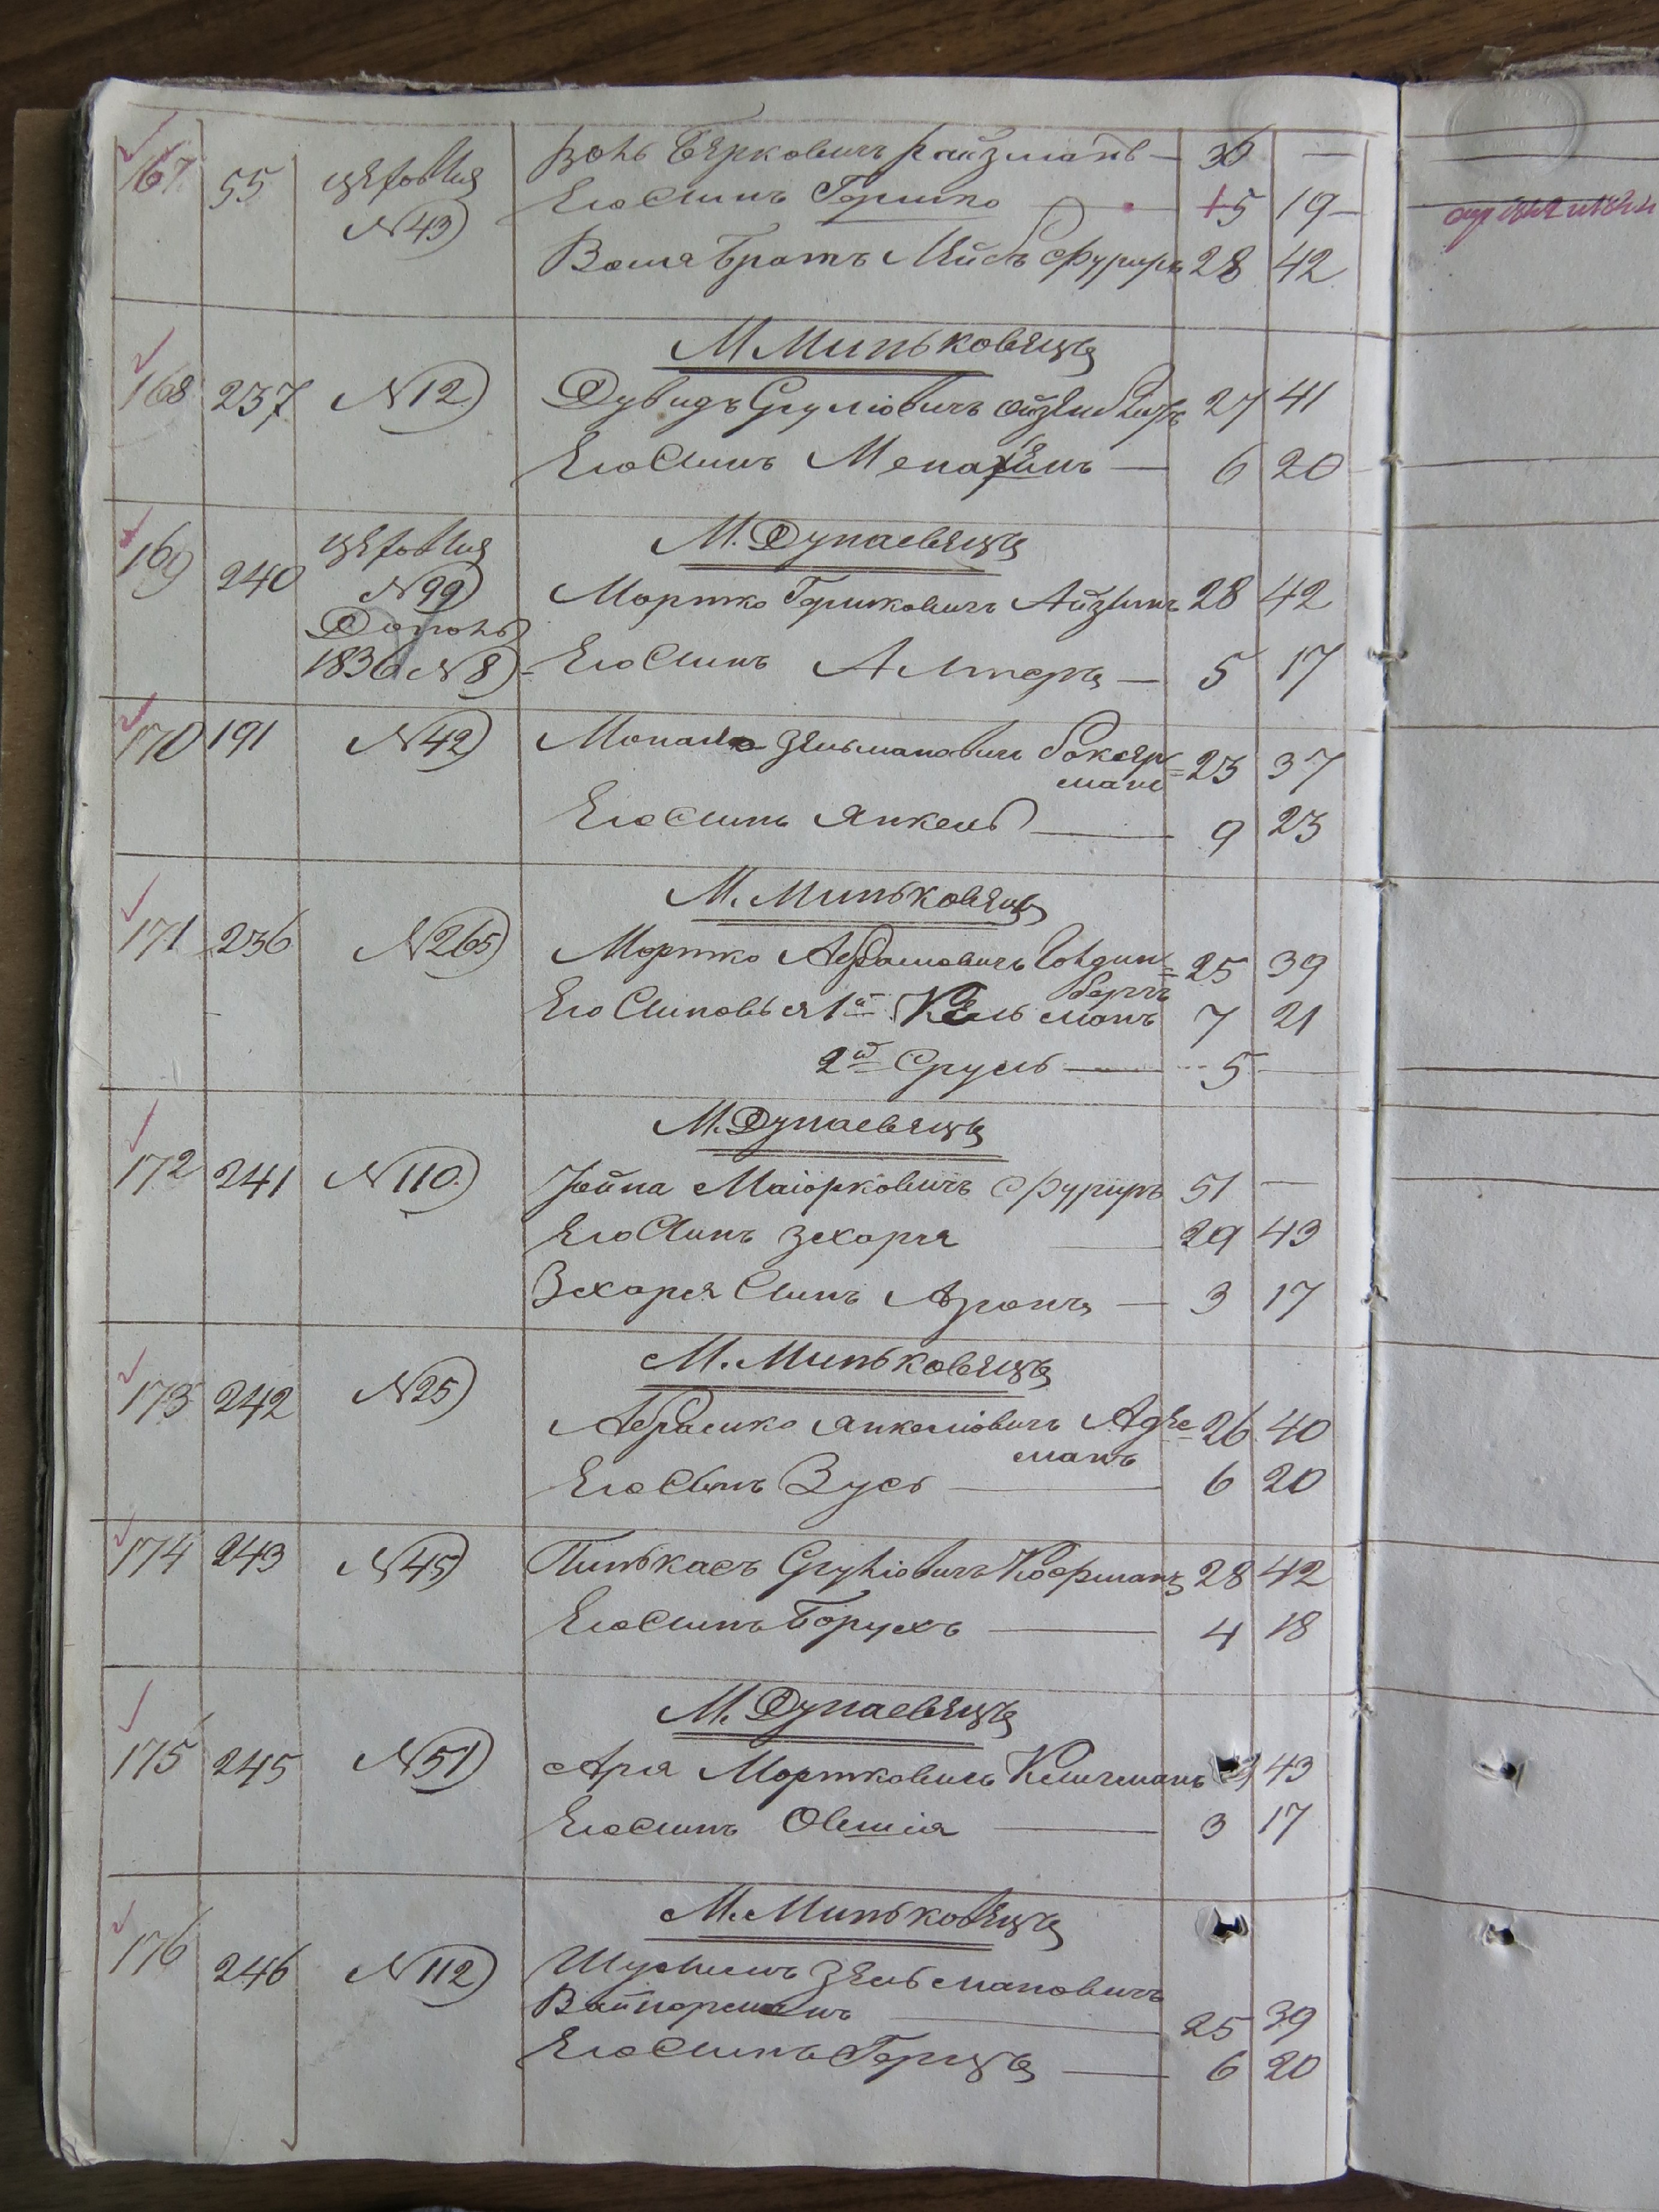 167 55 Цеховыя Волъ Берковичъ Райзманъ — 36 —
№ 43 Его Сынъ Гершко — 5 19
Вола Братъ Лейбъ Фурыръ 28 42
М. Миньковецъ
168 237 № 12 Дувидъ Сруліовичъ Айзенбергъ 27 41
Его Сынъ Менахимъ — 6 20
М. Дунаевецъ
169 240 Цеховыя № 99 Мортко Гершковичъ Айзинъ 28 42
Дополъ
1836 № 8 Его Сынъ Алтеръ — 5 17
170 191 № 42 Зельмановичъ Боксер= 23 37
манъ
Его Сынъ Янкель — 9 23
М. Миньковецъ
171 236 № 265 Мортко Абрамовичъ Голдин= 25 39
бергъ
Его Сыновья 1й Кельманъ 7 21
2й Сруль — 5 —
М. Дунаевецъ
172 241 № 110 Іойна Маіорковичъ Фурыръ 51 —
Его Сынъ Зехарья — 29 43
Зехарея Сынъ Аронъ — 3 17
М. Миньковецъ
173 242 № 25 Абрамко Янкеліовичъ Адле= 26 40
манъ
Его Сынъ Зусь — 6 20
174 243 № 45 Пинькасъ Сруліовичъ Кофманъ 28 42
Его Сынъ Борухъ — 4 18
М. Дунаевецъ
175 245 № 51 Аря Мортковичъ Клигманъ 43
Его Сынъ Овшія — 3 17
М. Миньковецъ
176 246 № 112 Шулимъ Зельмановичъ
Вайнерманъ — 25 39
Его Сынъ Герцъ — 6 20